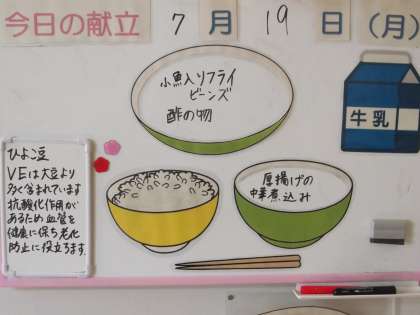 今日の献立 7月19日(月)
小魚入りフライ
ビーンズ
酢の物
牛乳
ひよこ豆
VEは大豆より
多く含まれています
抗酸化作用が
あるため血管を
健康に保ち老化
防止に役立ちます。
厚揚げの
中華煮込み